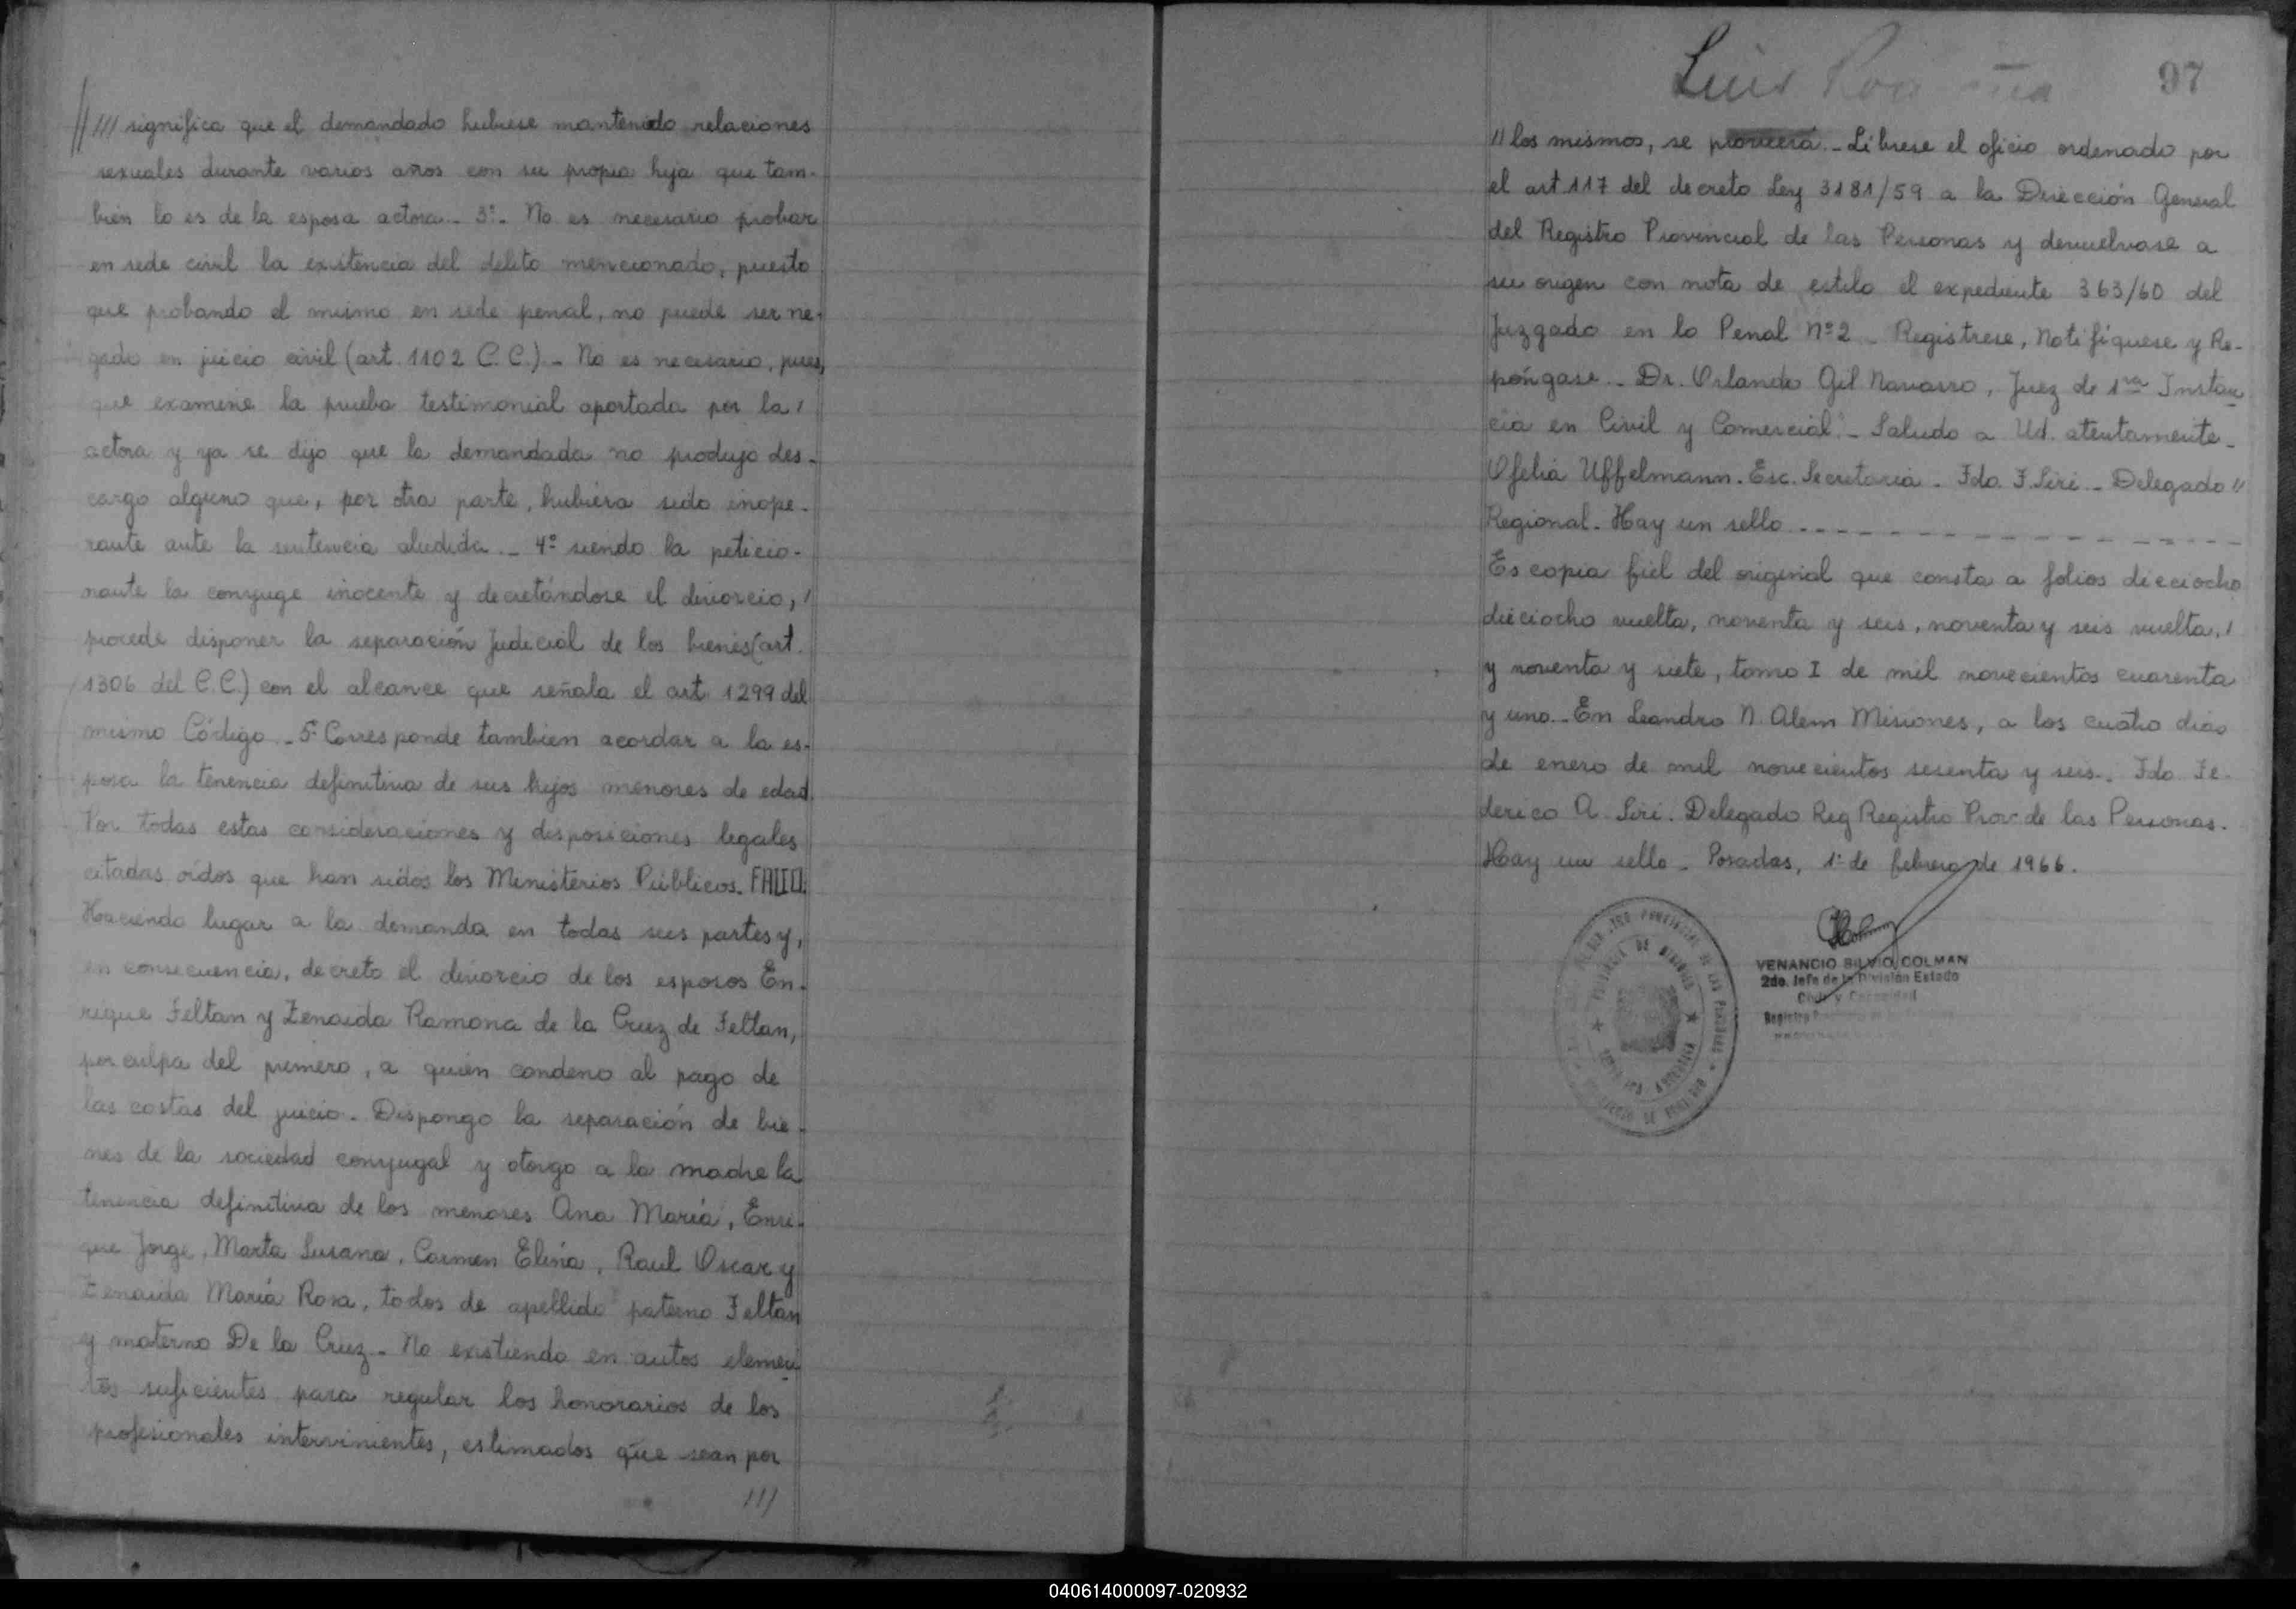 /// significa que el demandado hubiese mantenido relaciones
sexuales durante varios años con su propia hija que tam-
bién lo es de la esposa actora.- 3º.- No es necesario probar
en sede civil la existencia del delito mencionado, puesto
que probando el mismo en sede penal, no puede ser ne-
gado en juicio civil (art. 1102 C.C.).- No es necesario, pues,
que examine la prueba testimonial aportada por la /
actora y ya se dijo que la demandada no produjo des-
cargo alguno que, por otra parte, hubiera sido inope-
rante ante la sentencia aludida.- 4º siendo la peticio-
nante la conyuge inocente y decretándose el divorcio, /
procede disponer la separación Judicial de los bienes (art.
1306 del C.C.) con el alcance que señala el art 1299 del
mismo Código.- 5º Corresponde tambien acordar a la es-
posa la tenencia definitiva de sus hijos menores de edad.
Por todas estas consideraciones y disposiciones legales
citadas oídos que han sidos los Ministerios Públicos. FALLO:
Haciendo lugar a la demanda en todas sus partes y,
en consecuencia, decreto el divorcio de los esposos En-
rique Feltan y Zenaida Ramona de la Cruz de Feltan,
por culpa del primero, a quién condeno al pago de
las costas del juicio.- Dispongo la separación de bie-
nes de la sociedad conyugal y otorgo a la madre la
tenencia definitiva de los menores Ana María, Enri-
que Jorge, Marta Susana, Carmen Elena, Raul Oscar y
Zenaida María Rosa, todos de apellido paterno Feltan
y materno De la Cruz.- No existiendo en autos elemen
tos suficientes para regular los honorarios de los
profesionales intervinientes, estimados que sean por
///
Luis
97
// los mismos, se proveerá.- Líbrese el oficio ordenado por
el art. 117 del decreto Ley 3181/59 a la Dirección General
del Registro Provincial de las Personas y devuelvase a
su origen con nota de estilo el expediente 363/60 del
Juzgado en lo Penal Nº 2.- Registrese, Notifíquese y Re-
póngase.- Dr. Orlando Gil Navarro, Juez de 1ra Instan
cia en Civil y Comercial".- Saludo a Ud. atentamente.-
Ofelia Uffelmann. Esc. Secretaria.- Fdo. F. Siri.- Delegado //
Regional.- Hay un sello.- - - - - - - - - - - - - - -
Es copia fiel del original que consta a folios dieciocho
dieciocho vuelta, noventa y seis, noventa y seis vuelta, /
y noventa y siete, tomo I de mil novecientos cuarenta
y uno.- En Leandro N. Alem Misiones, a los cuatro dias
de enero de mil novecientos sesenta y seis.- Fdo. Fe-
derico A. Siri. Delegado Reg Registro Prov. de las Personas.
Hay un sello.- Posadas, 1º de febrero de 1966.
VENANCIO SILVIO COLMAN
2do. Jefe de la División Estado
Civil y Capacidad
Registro
040614000097-020932